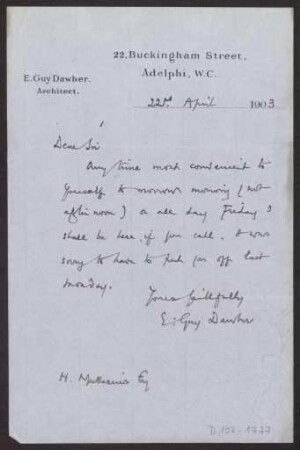 22, Buckingham Street,
Adelphi, W.C.
E. Guy Dawber.
Architect.
22nd April 1903
Dear Sir
Any time most convenient to
yourself to morrow morning (not
afternoon) or all day Friday I
shall be here, if you call. I was
sorry to have to put you off last
Monday.
Yours faithfully
E. Guy Dawber
H. Muthesius Esq
D 102-1777